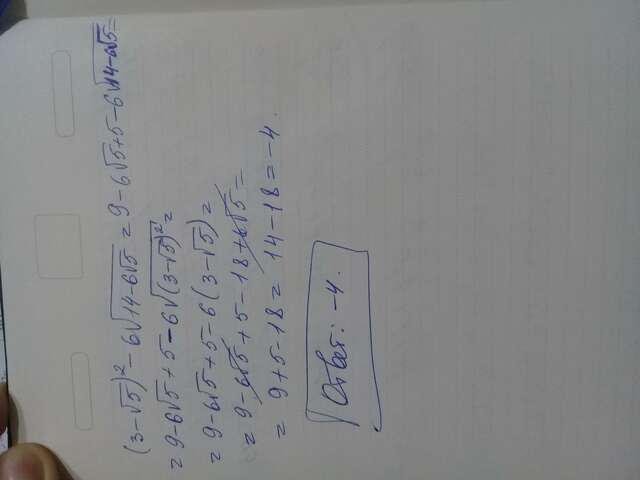 (3-√5)² - 6√(14-6√5) = 9-6√5+5-6√(14-6√5) =
= 9-6√5+5-6√((3-√5)²) =
= 9-6√5+5-6(3-√5) =
= 9-6√5+5-18+6√5 =
= 9+5-18 = 14-18 = -4.
Ответ: -4.